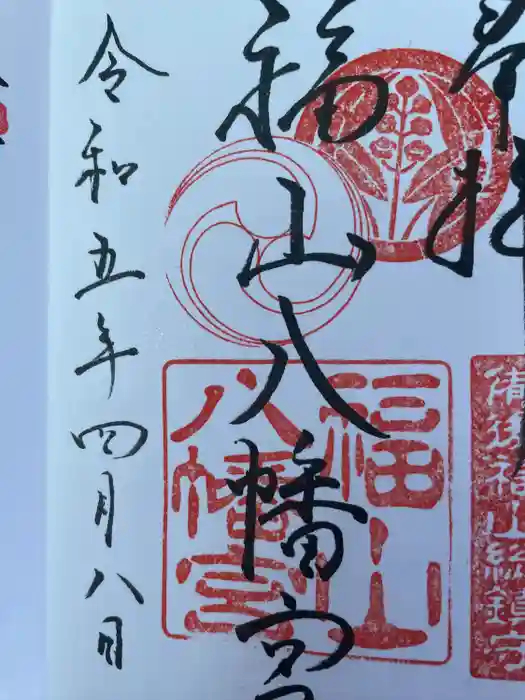 奉拝
備後福山総鎮守
福山八幡宮
福山八幡宮
令和五年四月八日